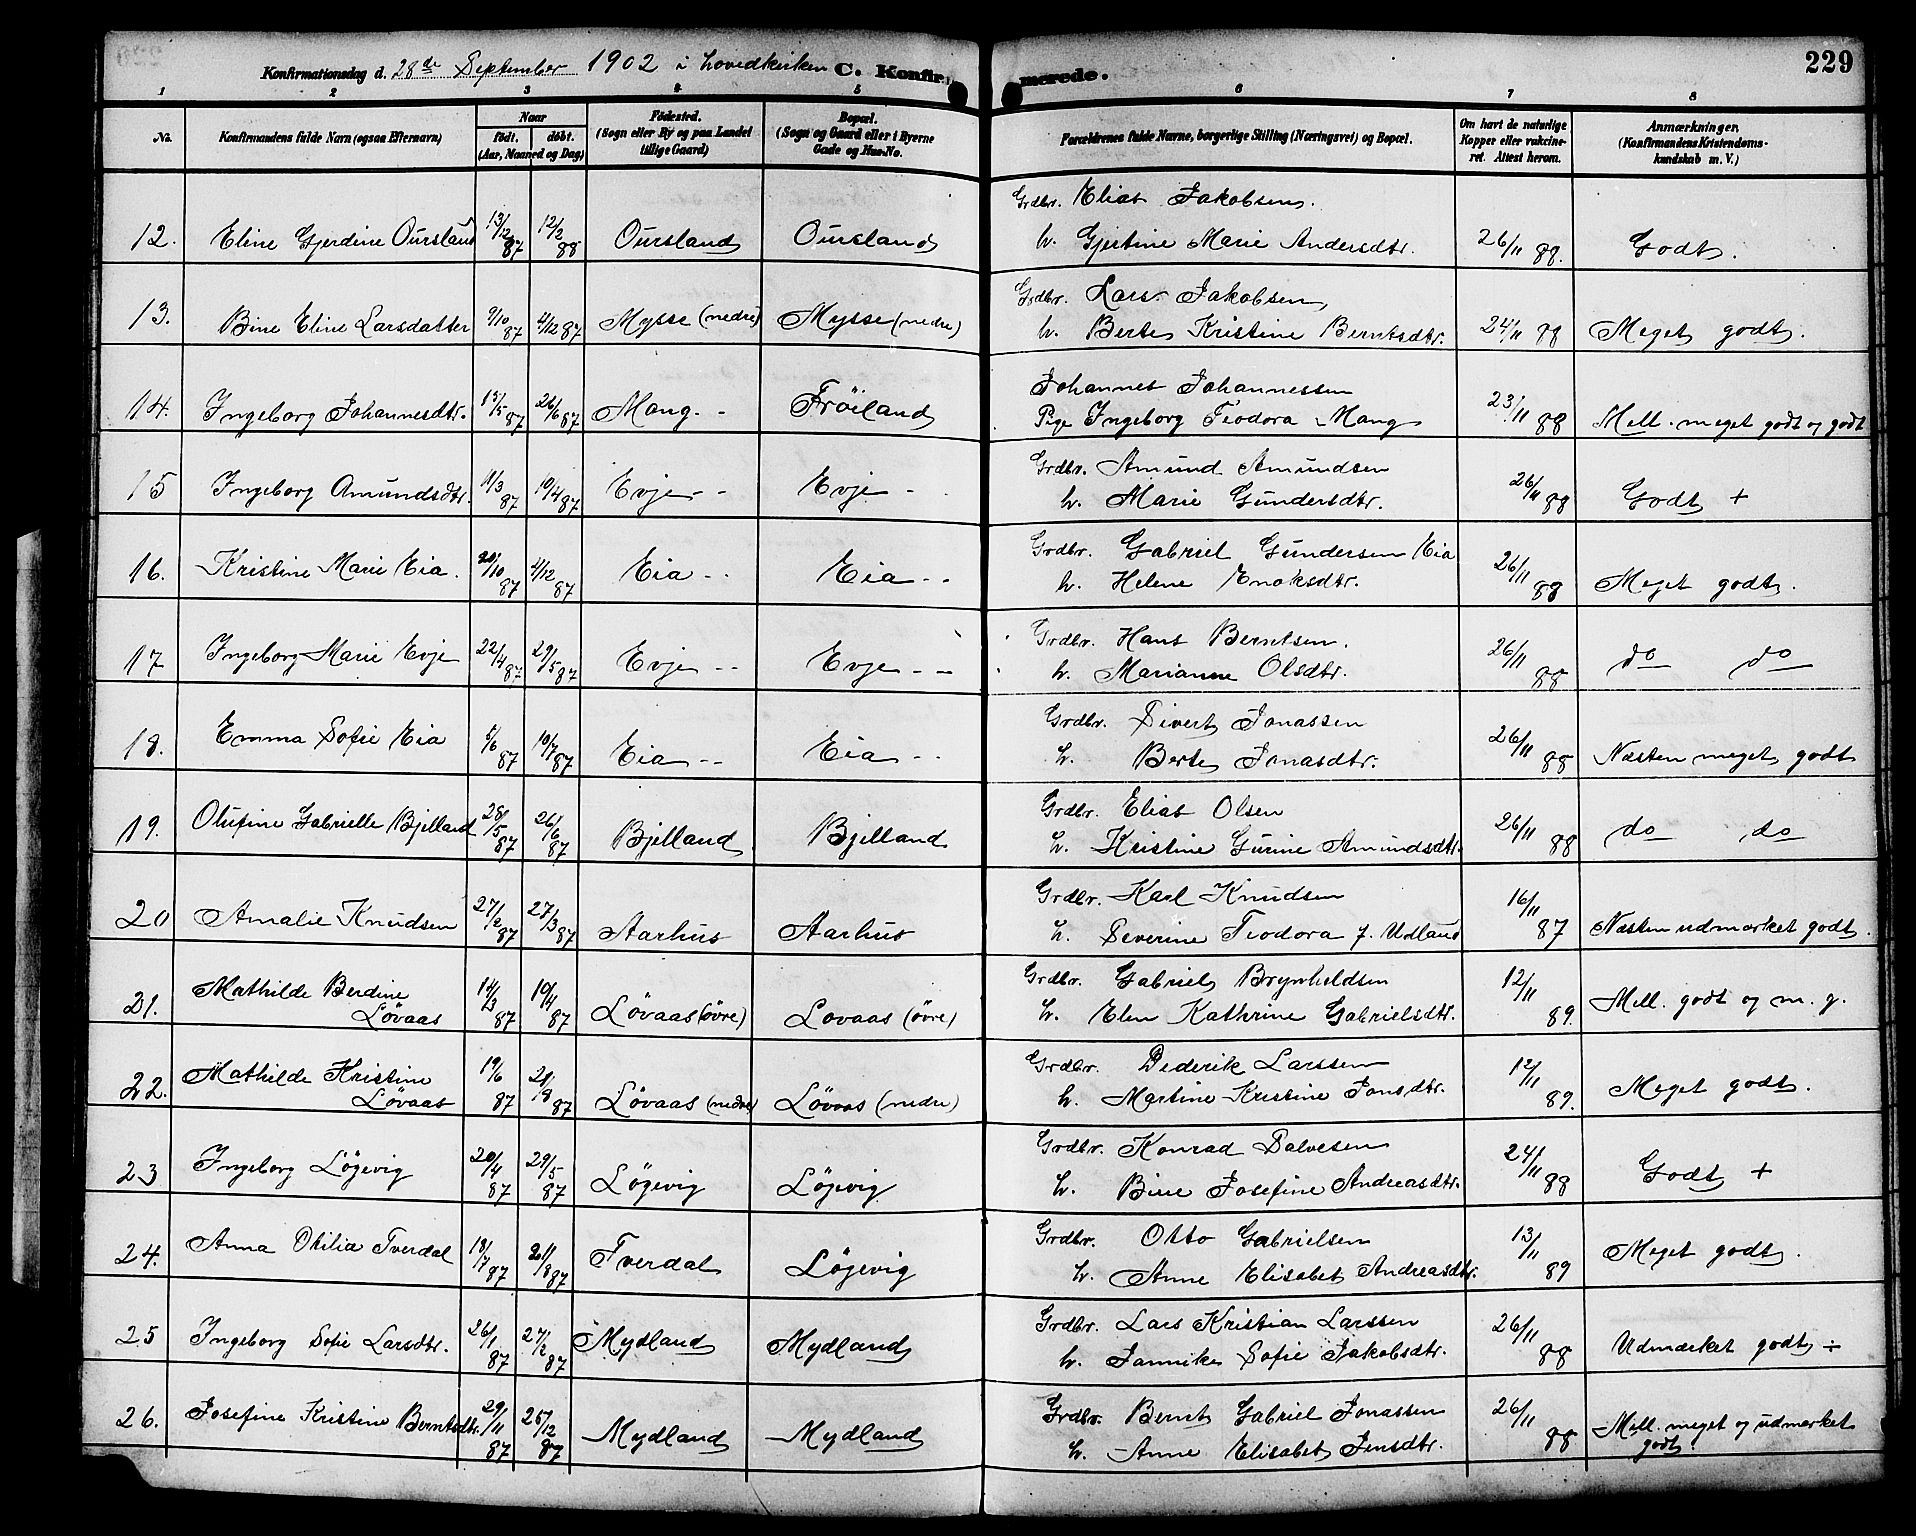 229
Konfirmationsdag d. 28de September 1902 i hovedkirken C. Konfirmerede.
1 2 3 4 5 6 7 8
No. Konfirmandens fulde Navn (ogsaa Efternavn) Naar født. døbt. (Aar, Maaned og Dag) Fødested. (Sogn eller By og paa Landet tillige Gaard) Bopæl. (Sogn og Gaard eller i Byerne Gade og Hus-No. Forældrenes fulde Navne, borgerlige Stilling (Næringsvei) og Bopæl. Om havt de naturlige Kopper eller vaccineret. Attest herom. Anmærkninger. (Konfirmandens Kristendomskundskab m. V.)
Grdbr. Elias Jakobsen.
12. Eline Gjerdine Oursland 13/12 87 12/2 88 Oursland Oursland h. Gjertine Marie Andersdtr. 26/11 88. Godt.
Grdbr. Lars Jakobsen,
13. Bine Eline Larsdatter 9/10 87 4/12 87 Mysse (nedre) Mysse (nedre) h. Berte Kristine Berntsdtr. 24/11 88 Meget godt.
Johannes Johannessen
14. Ingeborg Johannesdtr. 15/5 87 26/6 87 Mong - Frøiland Pige Ingeborg Teodora Mong 23/11 88 Mell. meget godt og godt
Grdbr. Amund Amundsen
15 Ingeborg Amundsdtr. 11/3 87 10/4 87 Evje - - Evje - h. Marie Gundersdtr. 26/11 88 Godt +
Grdbr. Gabriel Gundersen Eia
16. Kristine Marie Eia. 20/10 87 4/12 87 Eia - - Eia - - h. Helene Enoksdtr. 26/11 88 Meget godt.
Grdbr. Hans Berntsen.
17 Ingeborg Marie Evje 22/4 87 29/5 87 Evje - - Evje - - h. Marianne Olsdtr. 26/11 88 do do
Grdbr. Sivert Jonassen
18. Emma Sofie Eia 5/6 87 10/7 87 Eia - - Eia - - h. Berte Jonasdtr. 26/11 88 Næsten meget godt
Grdbr. Elias Olsen
19. Olufine Gabrielle Bjelland 28/5 87 26/6 87 Bjelland Bjelland h. Kristine Gurine Amundsdtr. 26/11 88 do do
Grdbr. Karl Knudsen
20 Amalie Knudsen 27/2 87 27/3 87 Aarhus Aarhus h. Severine Teodora f. Udland 16/11 87 Næsten udmærket godt.
Grdbr. Gabriel Brynheldsen
21. Mathilde Berdine Løvaas 14/3 87 10/4 87 Løvaas (øvre) Løvaas (øvre) h. Elen Kathrine Gabrielsdtr. 12/11 89. Mell. godt og m. g.
Grdbr. Dederik Larssen
22. Mathilde Kristine Løvaas 19/6 87 21/8 87 Løvaas (nedre) Løvaas (nedre) h. Martine Kristine Jonsdtr. 12/11 89. Meget godt.
Grdbr. Konrad Salvesen
23 Ingeborg Løgevig 20/4 87 29/5 87 Løgevig Løgevig h. Bine Josefine Andreasdtr. 24/11 88 Godt +
Grdbr. Otto Gabrielsen
24. Anna Otilia Tverdal 18/7 87 21/8 87 Tverdal Løgevig h. Anne Elisabet Andreasdtr. 13/11 89 Meget godt.
Grdbr. Lars Kristian Larssen
25 Ingeborg Sofie Larsdtr. 26/1 87 27/2 87 Mydland Mydland h. Jannike Sofie Jakobsdtr. 26/11 88 Udmærket godt ÷
Grdbr. Bernt Gabriel Jonassen
26. Josefine Kristine Berntsdtr. 29/11 87 25/12 87 Mydland Mydland h. Anne Elisabet Jensdtr. 26/11 88 Mell. meget og udmærket godt